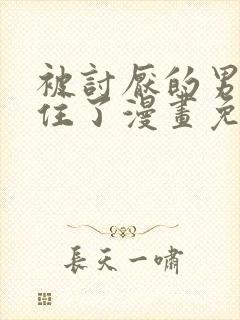 被討厭的男
住了漫畫免
長天一嘯